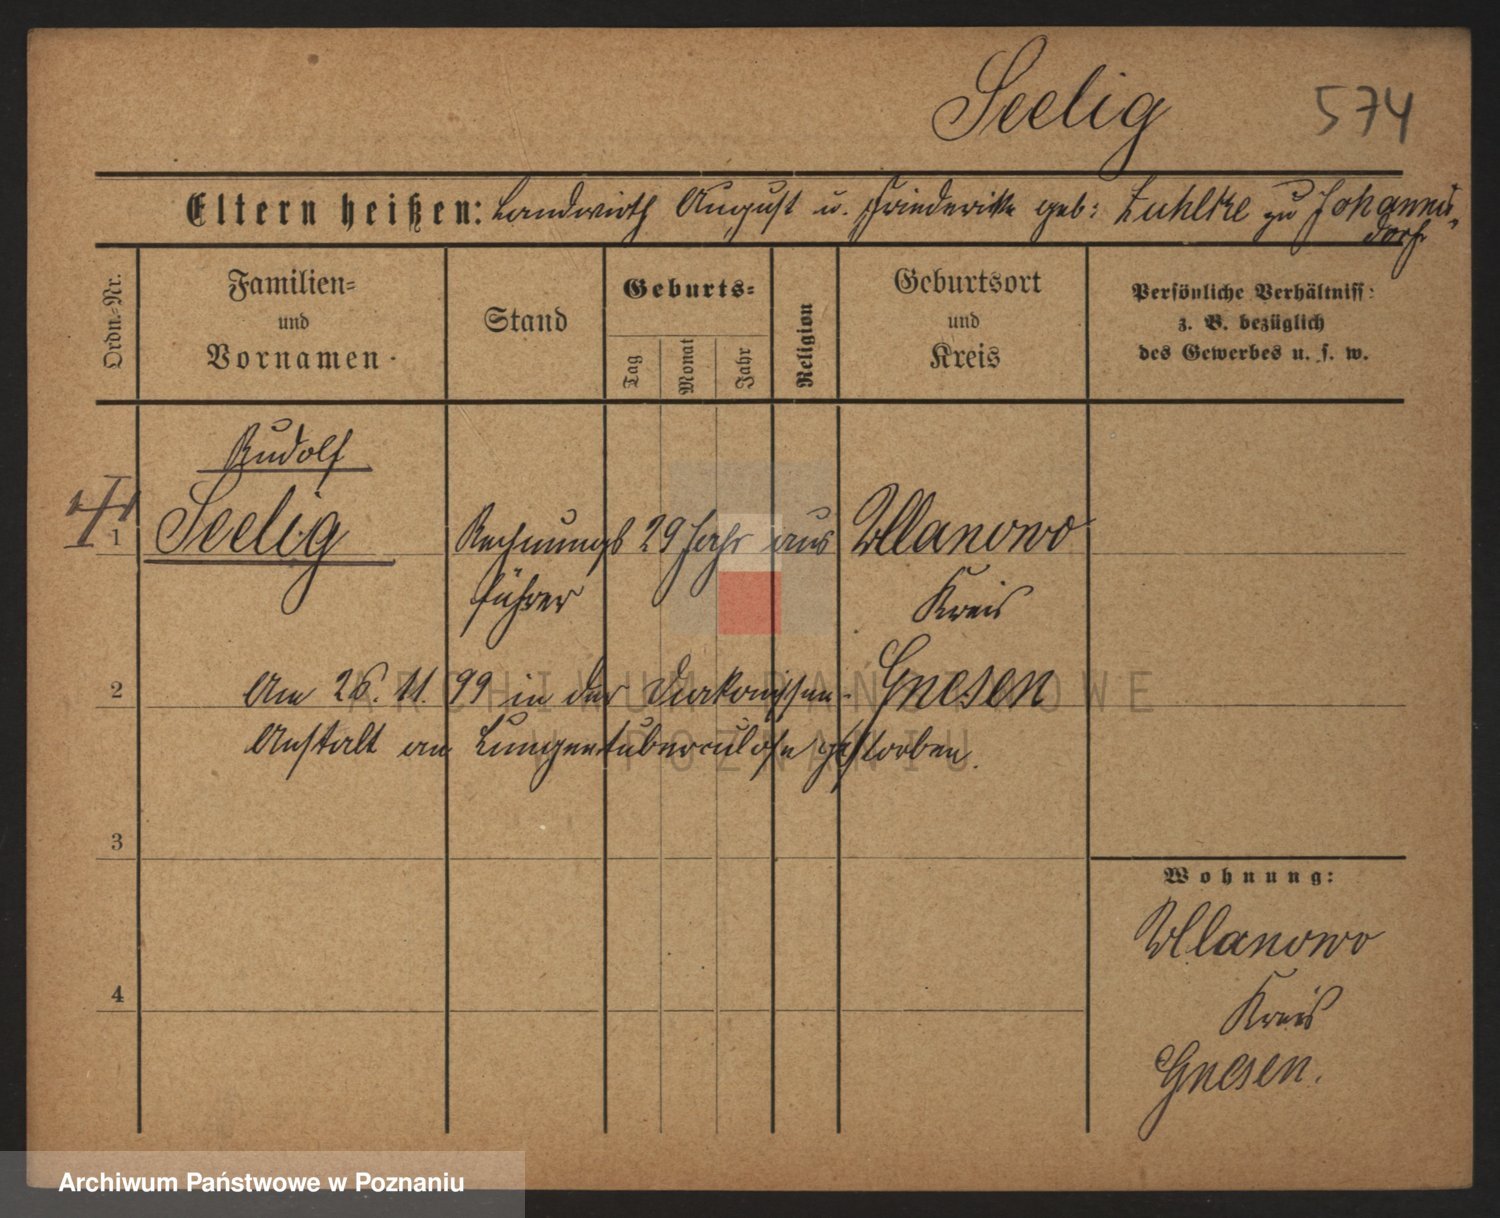 Seelig 574
Eltern heißen: Landwirth August u. Friederike geb: Luhlke zu Johannis-
dorf
Ordn.-Nr.
Familien=
und
Vornamen
Stand
Geburts=
Tag
Monat
Jahr
Religion
Geburtsort
und
Kreis
Persönliche Verhältniss:
z. B. bezüglich
des Gewerbes u. s. w.
Rudolf
1 Seelig Rechnungs 29 Jahr aus Ullanowo
führer Kreis
2 Am 26. 11. 99 in der Diakonissen- Gnesen
Anstalt an Lungentuberculose gestorben.
3
4
Wohnung:
Ullanowo
Kreis
Gnesen.
ARCHIWUM PAŃSTWOWE
W POZNANIU
Archiwum Państwowe w Poznaniu